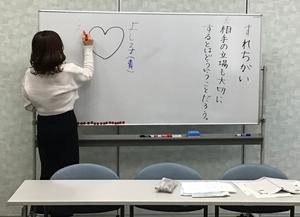 すれちがい
相手の立場も大切に
するとはどういうことだろう。
(青)